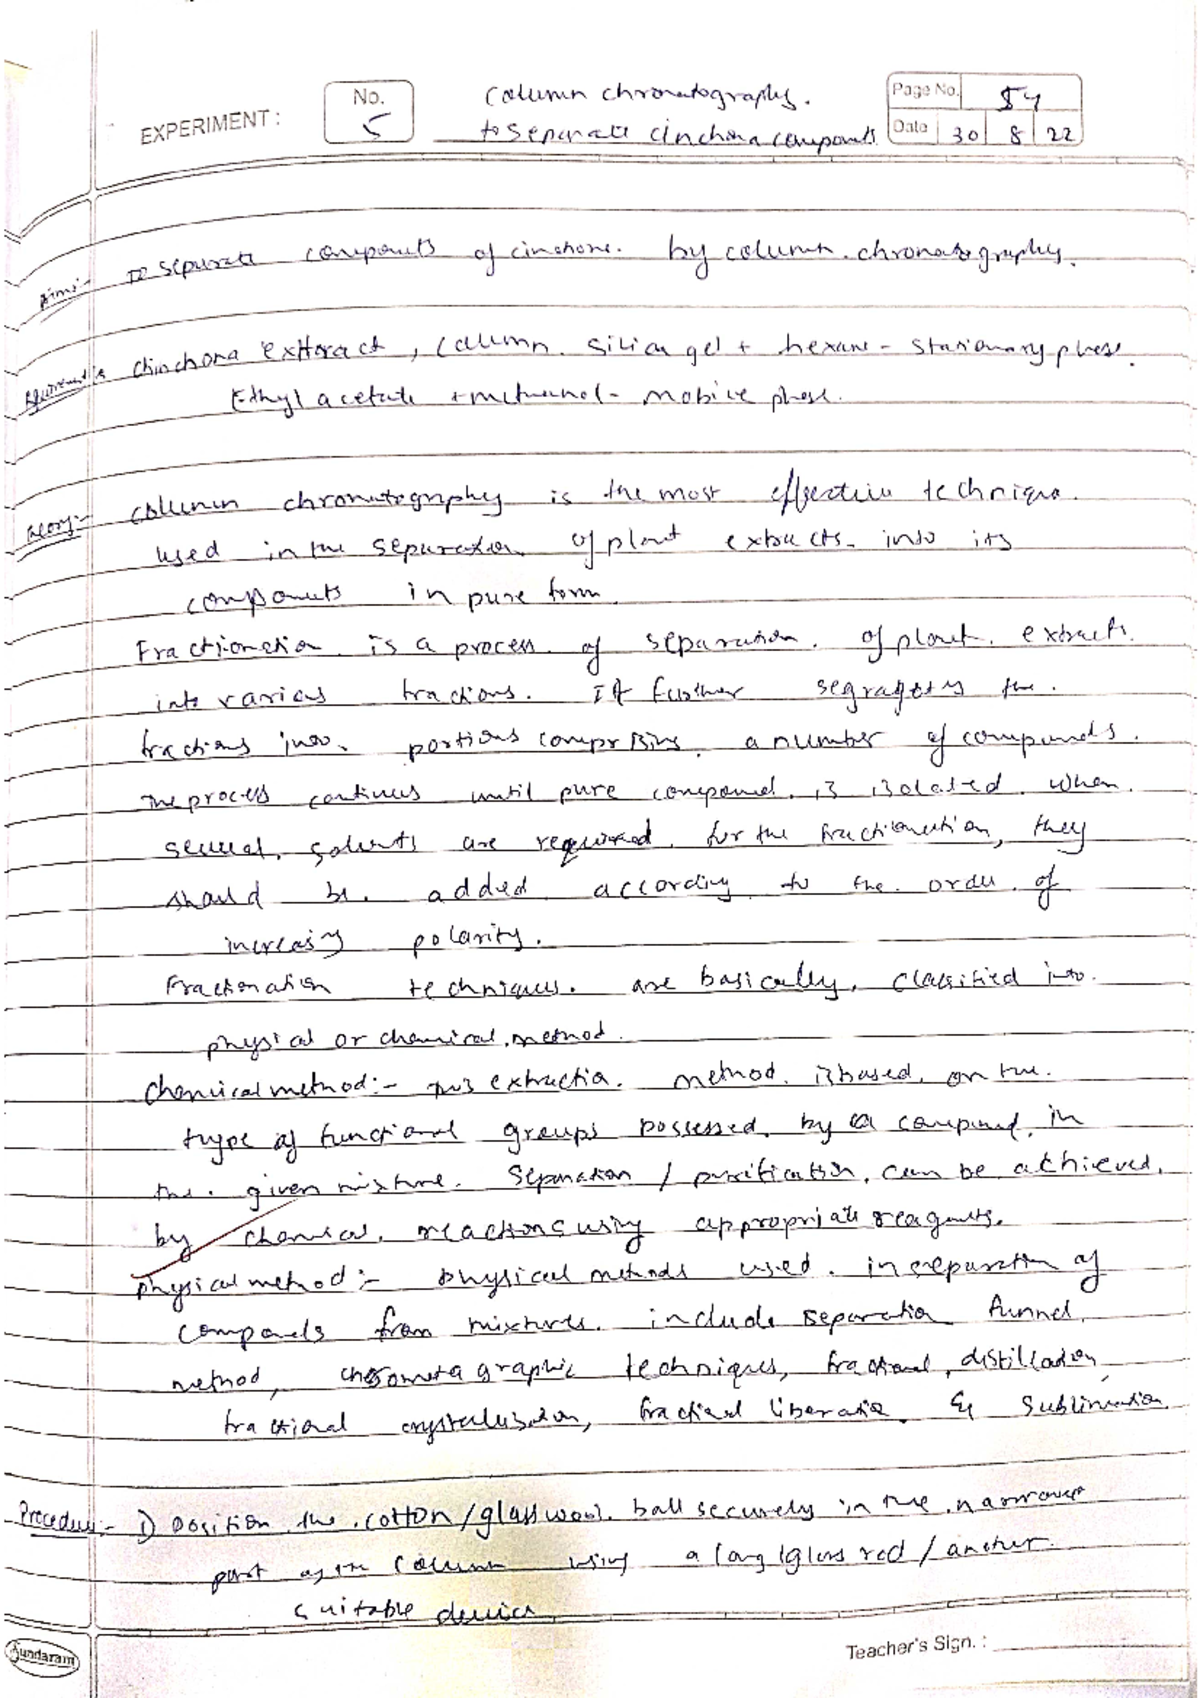 EXPERIMENT :
No.
5
Column chromatography.
to separate cinchona compounds
Page No. 54
Date 30 8 22
Aim:- to separate compounds of cinchona. by column chromatography.
Requirements Chinchona extract, column. Silica gel + hexane - stationary phase.
Ethyl acetate + methanol - mobile phase.
Theory:- column chromatography is the most effective technique.
used in the separation of plant extracts into its
components in pure form.
Fractionation is a process of separation of plant extracts.
into various fractions. It further segragates the
fractions into portions comprising a number of compounds.
The process continues until pure compound is isolated. When
several solvents are required for the fractionation, they
should be added according to the order of
increasing polarity.
Fractionation techniques are basically classified into
physical or chemical method.
Chemical method:- this extraction method is based on the
type of functional groups possessed by a compound in
the given mixture. Separation / purification can be achieved
by chemical reactions using appropriate reagents.
Physical method:- physical methods used in separation of
compounds from mixtures include separation funnel
method, chromatographic techniques, fractional distillation,
fractional crystallisation, fractional liberation & sublimation
Procedure:- 1) Position the cotton/glass wool ball securely in the narrowest
part of the column using a long glass rod / another
suitable device
Sundaram
Teacher's Sign. :